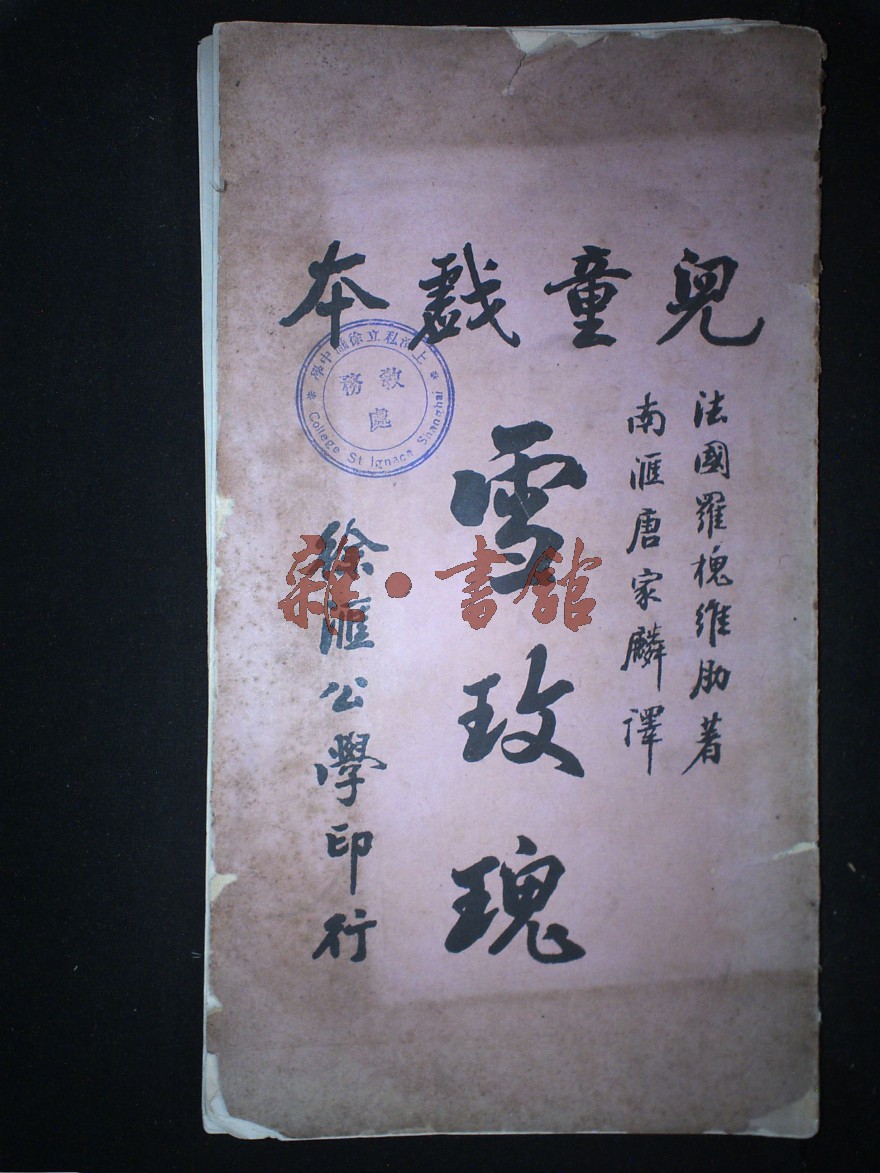 兒童戲本
法國羅槐維勛著
南滙唐家麟譯
雪玫瑰
徐滙公學印行
上海私立徐滙中學
教務處
College St Ignace Shanghai
雜·書館